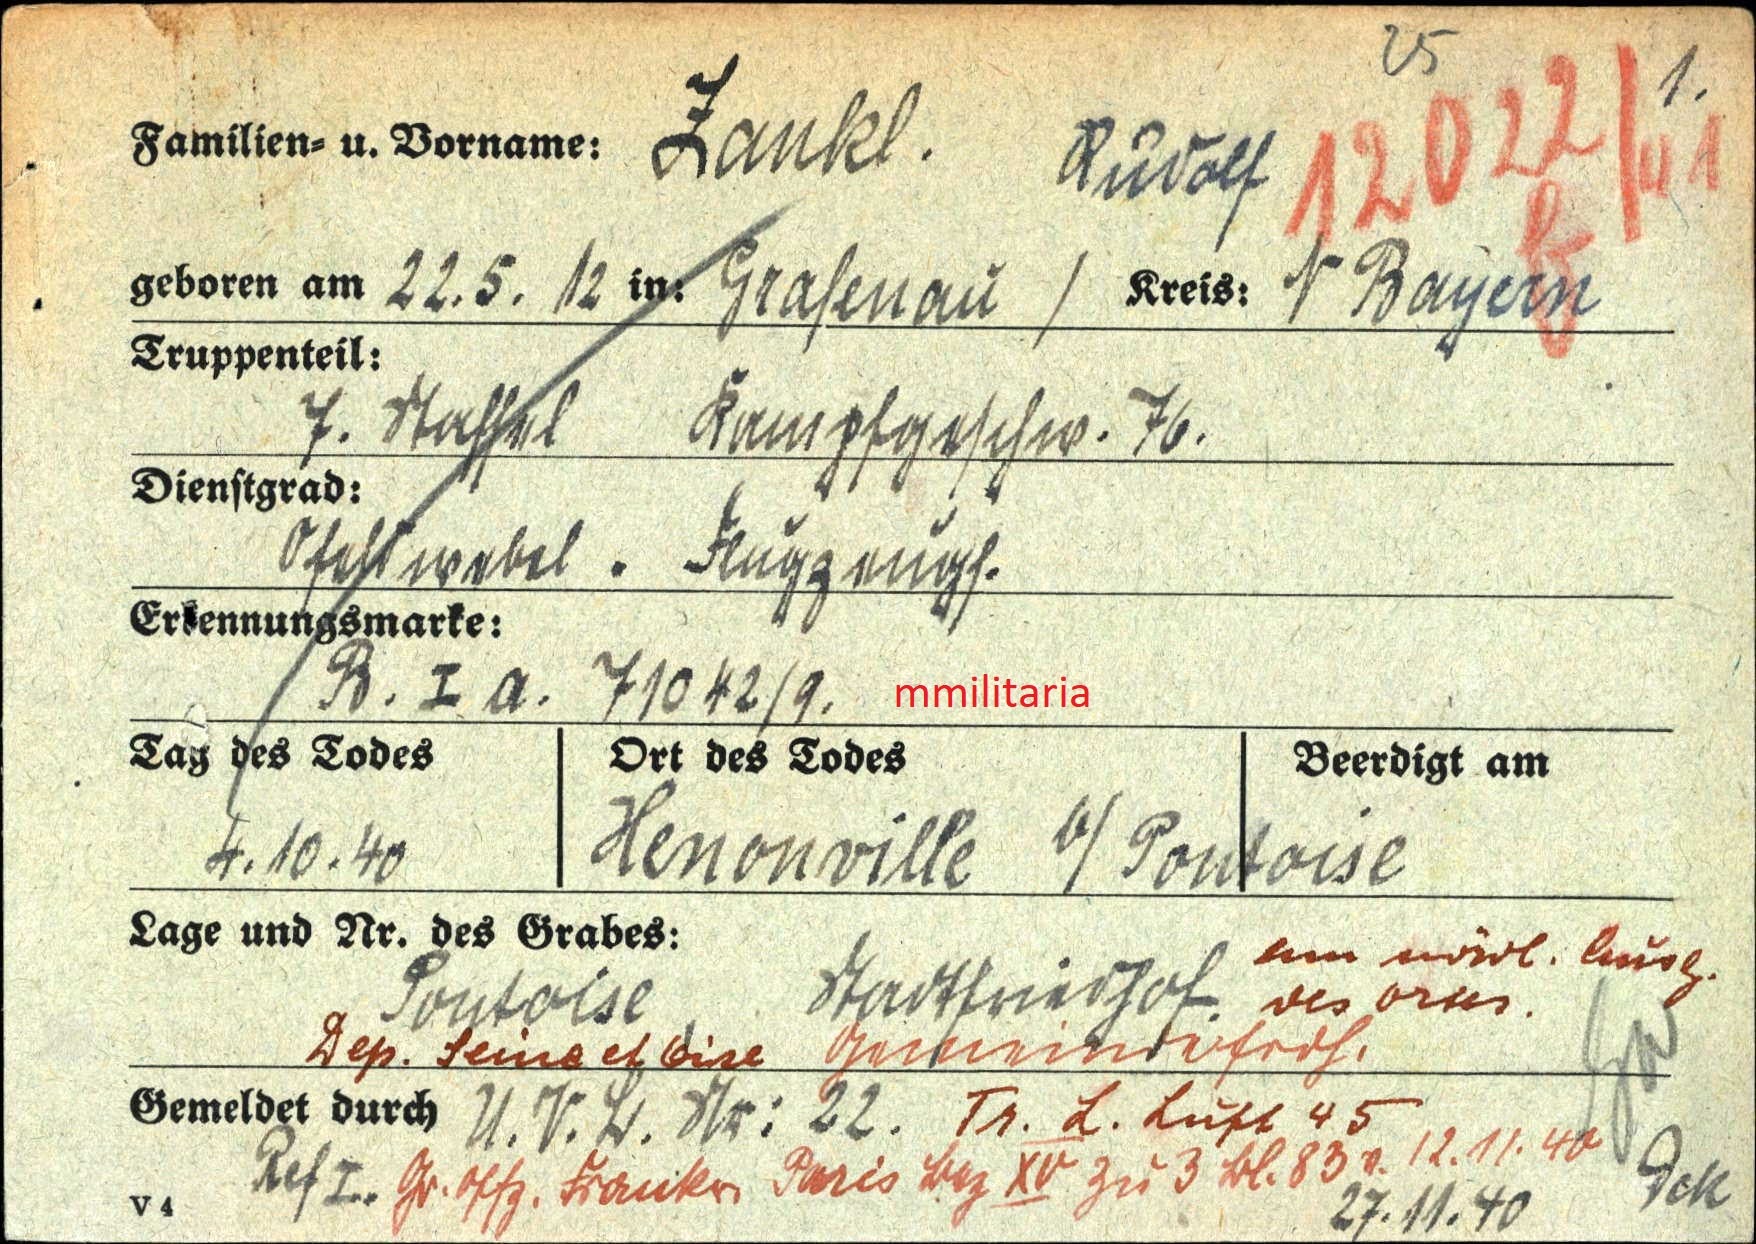 25
1.
Familien= u. Vorname: Zankl. Rudolf 12022/41
geboren am 22.5.12 in: Grafenau / Kreis: N Bayern
Truppenteil:
7. Staffel Kampfgeschw. 76.
Dienstgrad:
Ofeldwebel. Flugzeugf.
Erkennungsmarke:
B. I a. 71042/9. mmilitaria
Tag des Todes Ort des Todes Beerdigt am
4.10.40 Henonville b/ Pontoise
Lage und Nr. des Grabes:
am nördl. Ausg.
Pontoise Stadtfriedhof. des Ortes.
Dep. Seine et Oise Gemeindefrdh.
Gemeldet durch U.V.L. Nr: 22. Tr. L. Luft 45
Ref I. Gr. Offz. Frankr. Paris Bez XV zu 3 Bl. 83 v. 12.11.40
V 4 27.11.40